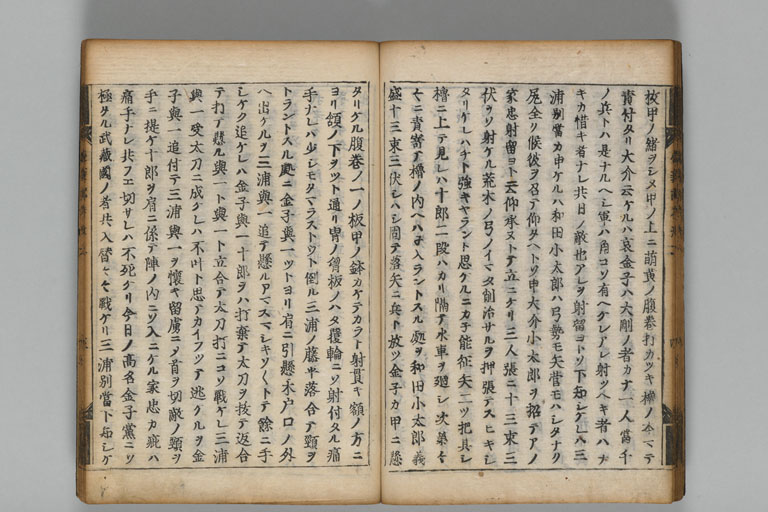 抜甲ノ緒ヲシメ甲ノ上ニ萌黄ノ腹巻打カツキ櫓ノ本マテ
責付タリ大介云ケルハ哀金子ハ大剛ノ者カナ一人當千
ノ兵トハ是ナルヘシ軍ハ角コソ有ヘケレアレ射ツヘキ者ハナ
キカ惜キ者ナレ共日ノ敵也アレヲ射留ヨトソ下知シケレハ三
浦別當カ申ケルハ和田小太郎ハ弓勢モ矢管モハシタナク
尾全リ候彼ヲ召テ仰タヘトソ申大介小太郎ヲ招テアノ
家忠射留ヨト云仰承ヌトテ立ニケリ三人張ニ十三束三
伏ヲソ射ケル荒木ノ弓ノイマタ削治サルヲ押張テスヒキシ
タリケレハチト強キヤラント思ケルニカ子能征矢二ツ把具シ
櫓ニ上テ見レハ十郎ニ段ハカリ隔テ水車ヲ廻シ次第々
々ニ責寄テ櫓ノ内ヘハ子入ラントスル処ヲ和田小太郎義
盛十三束三伏シハシ固テ落矢ニ兵ト放ツ金子カ甲ニ懸
タリケル腹巻ノ一ノ板甲ノ鉢カケテカラト射貫キ額ノ方ニ
ヨリ頷ノ下ヲツト通リ冑ノ胷板ノハタ覆輪ニソ射付タル痛
手ナレハ少シモタマラストウト倒ル三浦ノ藤平落合テ頸ヲ
トラントスル処ニ金子與一ツトヨリ肩ニ引懸木戸口ノ外
ヘ出ケルヲ三浦與一追テ懸ルアマスマシキソ々トテ餘ニ手
シケク追ケレハ金子與一十郎ヲハ打棄テ太刀ヲ抜テ返合
テ打テ懸ル與一ト與一ト立合テ太刀打ニコソ戰ケレ三浦
與一受太刀ニ成ケレハ不叶ト思テカイフツテ逃クルヲ金
子與一追付テ三浦與一ヲ懐キ留虜ニシ首ヲ切敵ノ頸ヲ
手ニ提ケ十郎ヲ肩ニ係テ陣ノ内ニソ入ニケル家忠カ疵ハ
痛手ナレ共フエ切サレハ不死ケリ今日ノ高名金子黨ニソ
極タル武蔵國ノ者共入替々々戰ケリ三浦別當下知シケ